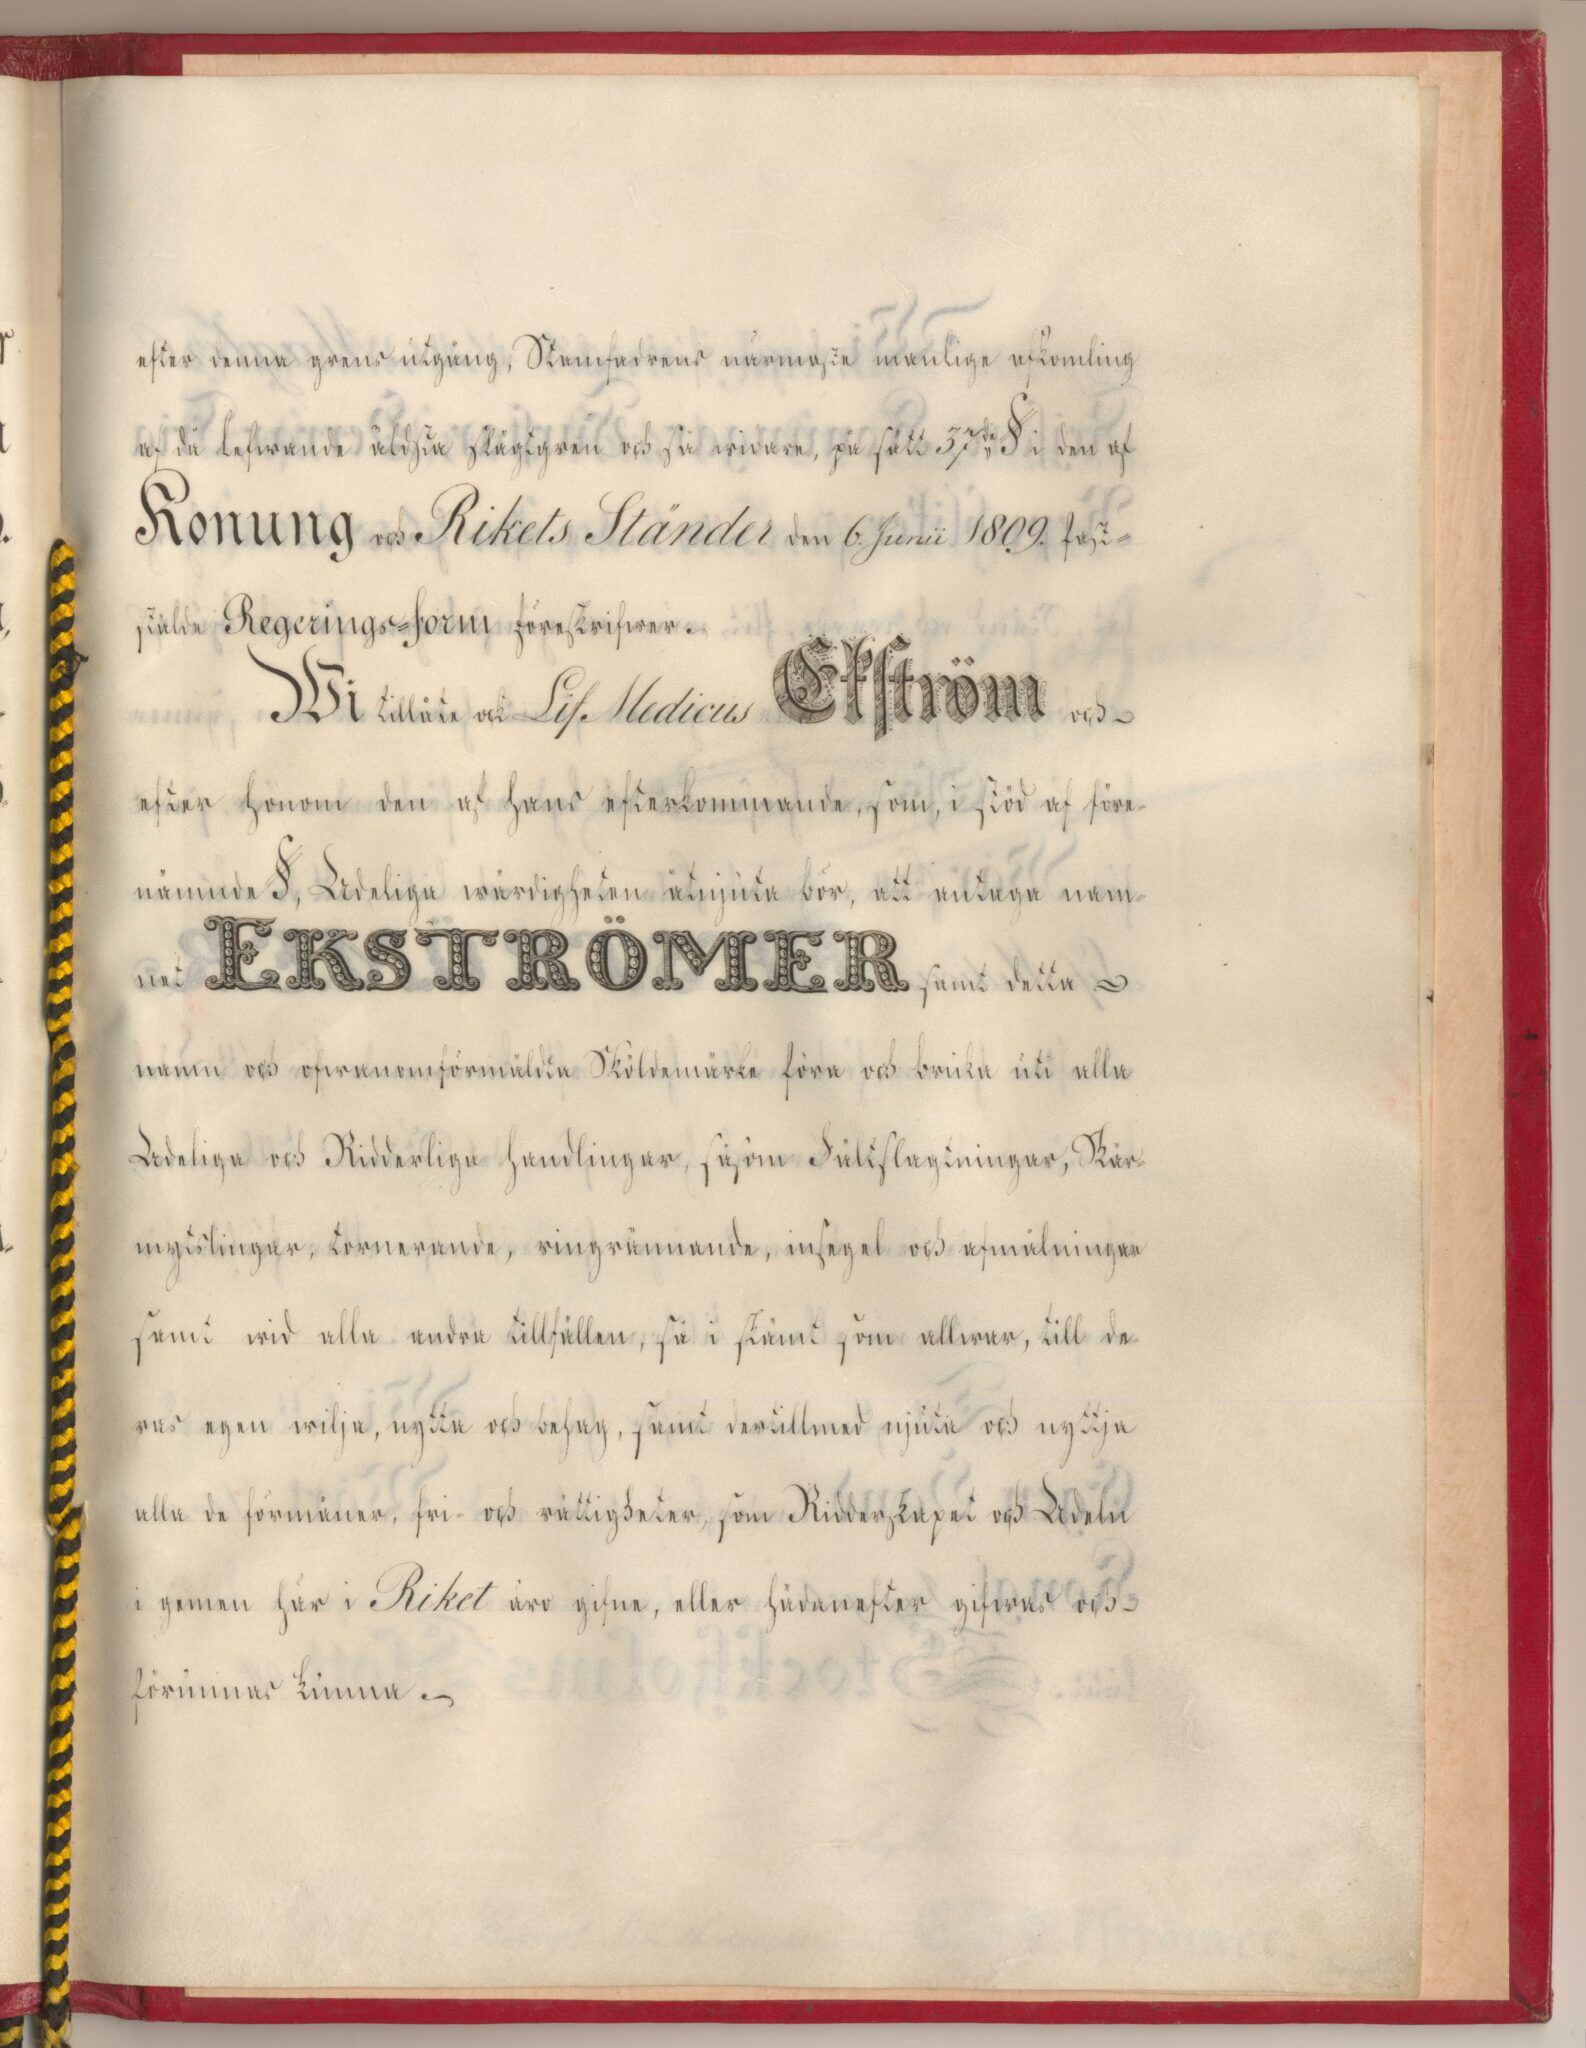 efter denna grens utgång, Stamfadrens närmaste manlige afkomling
af då lefwande äldsta slägtgren och så widare, på sätt 37de § i den af
Konung och Rikets Ständer den 6. Junii 1809. fast-
stälde Regerings-form föreskrifwer.
Wi tillåte ock Lif Medicus Ekström och
efter honom den af hans efterkommande, som, i stöd af före-
nämnde §, Adeliga wärdigheten åtnjuta bör, att antaga nam-
net EKSTRÖMER samt detta
namn och ofwanomförmäldta Sköldemärke föra och bruka uti alla
Adeliga och Ridderliga handlingar, såsom Fältslagtningar, Skär-
mytslingar, tornerande, ringrännande, insegel och afmålningar
samt wid alla andra tillfällen, så i skämt som allwar, till de-
ras egen wilja, nytta och behag, samt dertillmed njuta och nyttja
alla de förmåner, fri- och rättigheter, som Ridderskapet och Adeln
i gemen här i Riket äro gifne, eller hädanefter gifwas och
förunnas kunna.